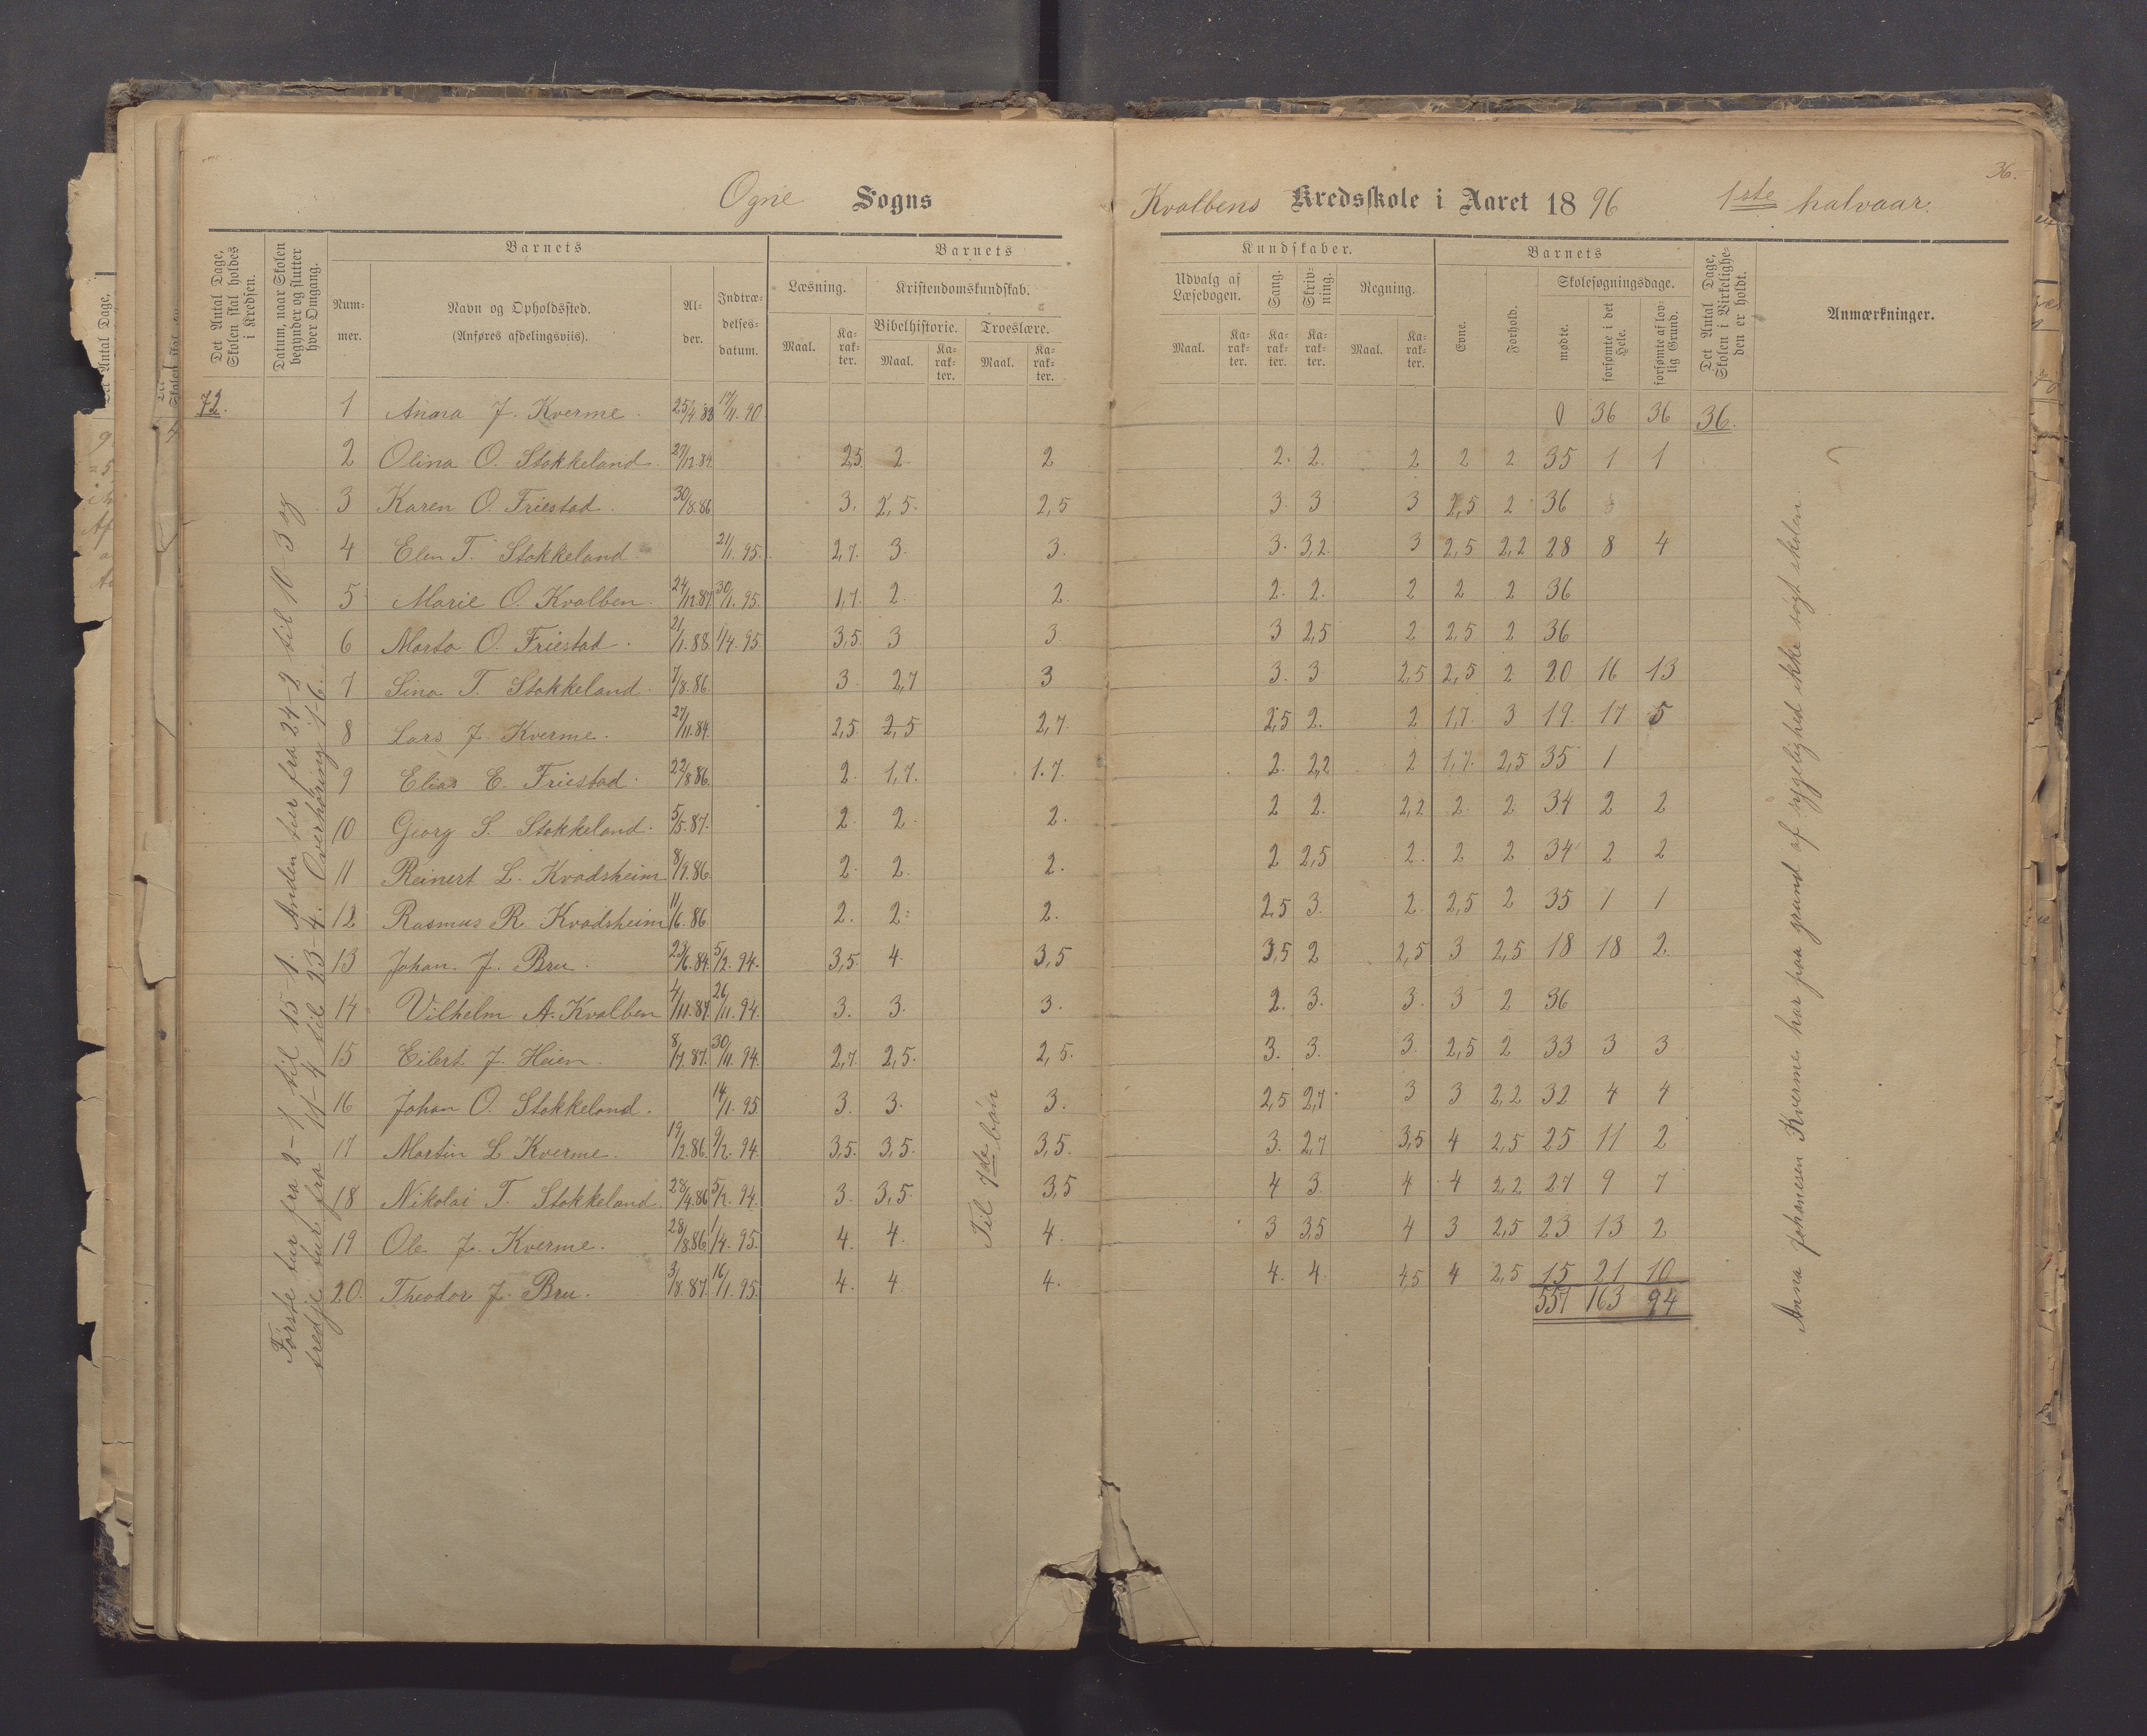 36.
Ogne Sogns Kvalbens Kredsskole i Aaret 1896 1ste halvaar.
Det Antal Dage, Skolen skal holdes i Kredsen.
Datum, naar Skolen begynder og slutter hver Omgang.
Barnets
Nummer.
Navn og Opholdssted.
(Anføres afdelingsviis).
Alder.
Indtrædelsesdatum.
Barnets Kundskaber.
Læsning. Maal. Karakter.
Kristendomskundskab.
Bibelhistorie. Maal. Karakter.
Troeslære. Maal. Karakter.
Udvalg af Læsebogen. Maal. Karakter.
Sang. Karakter.
Skrivning. Karakter.
Regning. Maal. Karakter.
Barnets
Evne.
Forhold.
Skolesøgningsdage.
mødte.
forsømte i det Hele.
forsømte af lovlig Grund.
Det Antal Dage, Skolen i Virkeligheden er holdt.
Anmærkninger.
72. 1 Anna J. Kverme. 25/4.82 17/11.90 0 36 36 36.
2 Olina O. Stokkeland. 27/12.84. 2,5. 2. 2 2. 2. 2 2 2 35 1 1
3 Karen O. Friestad. 30/8.86 3. 2,5. 2,5 3. 3 3 2,5 2 36
4 Elen T. Stokkeland. 21/1.95. 2,7. 3. 3. 3. 3,2. 3 2,5 2,2 28 8 4
5 Marie O. Kvalben. 24/12.87. 30/1.95. 1,7. 2. 2. 2. 2. 2 2 2 36
6 Marta O. Friestad. 21/1.88. 1/4.95 3,5. 3 3. 3 2,5 2 2,5 2 36
7 Sina T. Stokkeland. 7/8.86. 3. 2,7 3 3. 3 2,5 2,5 2 20 16 13
8 Lars J. Kverme. 27/11.84. 2,5. 2,5 2,7. 2,5 2. 2 1,7. 3 19. 17 5
9 Elias E. Friestad. 22/8 86. 2. 1,7. 1.7. 2. 2,2 2 1,7. 2,5 35 1
10 Georg S. Stokkeland. 5/5.87. 2. 2. 2. 2 2. 2,2 2. 2. 34 2 2
11 Reinert L. Kvadsheim 8/9.86. 2. 2. 2. 2 2,5 2. 2 2 34 2 2
12 Rasmus R. Kvadsheim 11/6.86 2. 2. 2. 2,5 3. 2. 2,5 2 35 1 1
13 Johan. J. Bru. 23/6.84. 5/2.94. 3,5. 4. 3,5 3,5 2 2,5 3 2,5 18 18 2.
14 Vilhelm A. Kvalben 4/11.84. 26/11.94. 3. 3. 3. 2. 3. 3. 3 2 36
15 Eilert J. Heien. 8/7.87. 30/11.94. 2,7. 2,5. 2,5. 3. 3. 3. 2,5 2 33 3 3
16 Johan O. Stokkeland. 14/1.95 3. 3. 3. 2,5 2,7. 3 3 2,2 32 4 4
17 Martin L Kverme. 19/2.86. 9/2.94. 3,5. 3,5. 3,5. 3. 2,7 3,5 4 2,5 25 11 2
18 Nikolai T. Stokkeland. 28/4.86 5/2.94. 3. 3,5. 3,5 4 3. 4 4 2,2 27 9 7
19 Ole J. Kverme. 28/8.86 1/4.95. 4. 4. 4. 3 3,5 4 3 2,5 23 13 2
20. Theodor J. Bru. 3/8.87. 16/1.95. 4. 4. 4. 4. 4. 4,5 4 2,5 15 21 10
557 163 94
Første tur fra 2-1 til 15-1. Anden tur fra 24-2 til 10-3 og
tredje tur fra 11-4 til 23-4. Overhøring 1-6.
Til 7de bøn
Anna Johanesen Kverme har paa grund af sygelighed ikke søgt skolen.